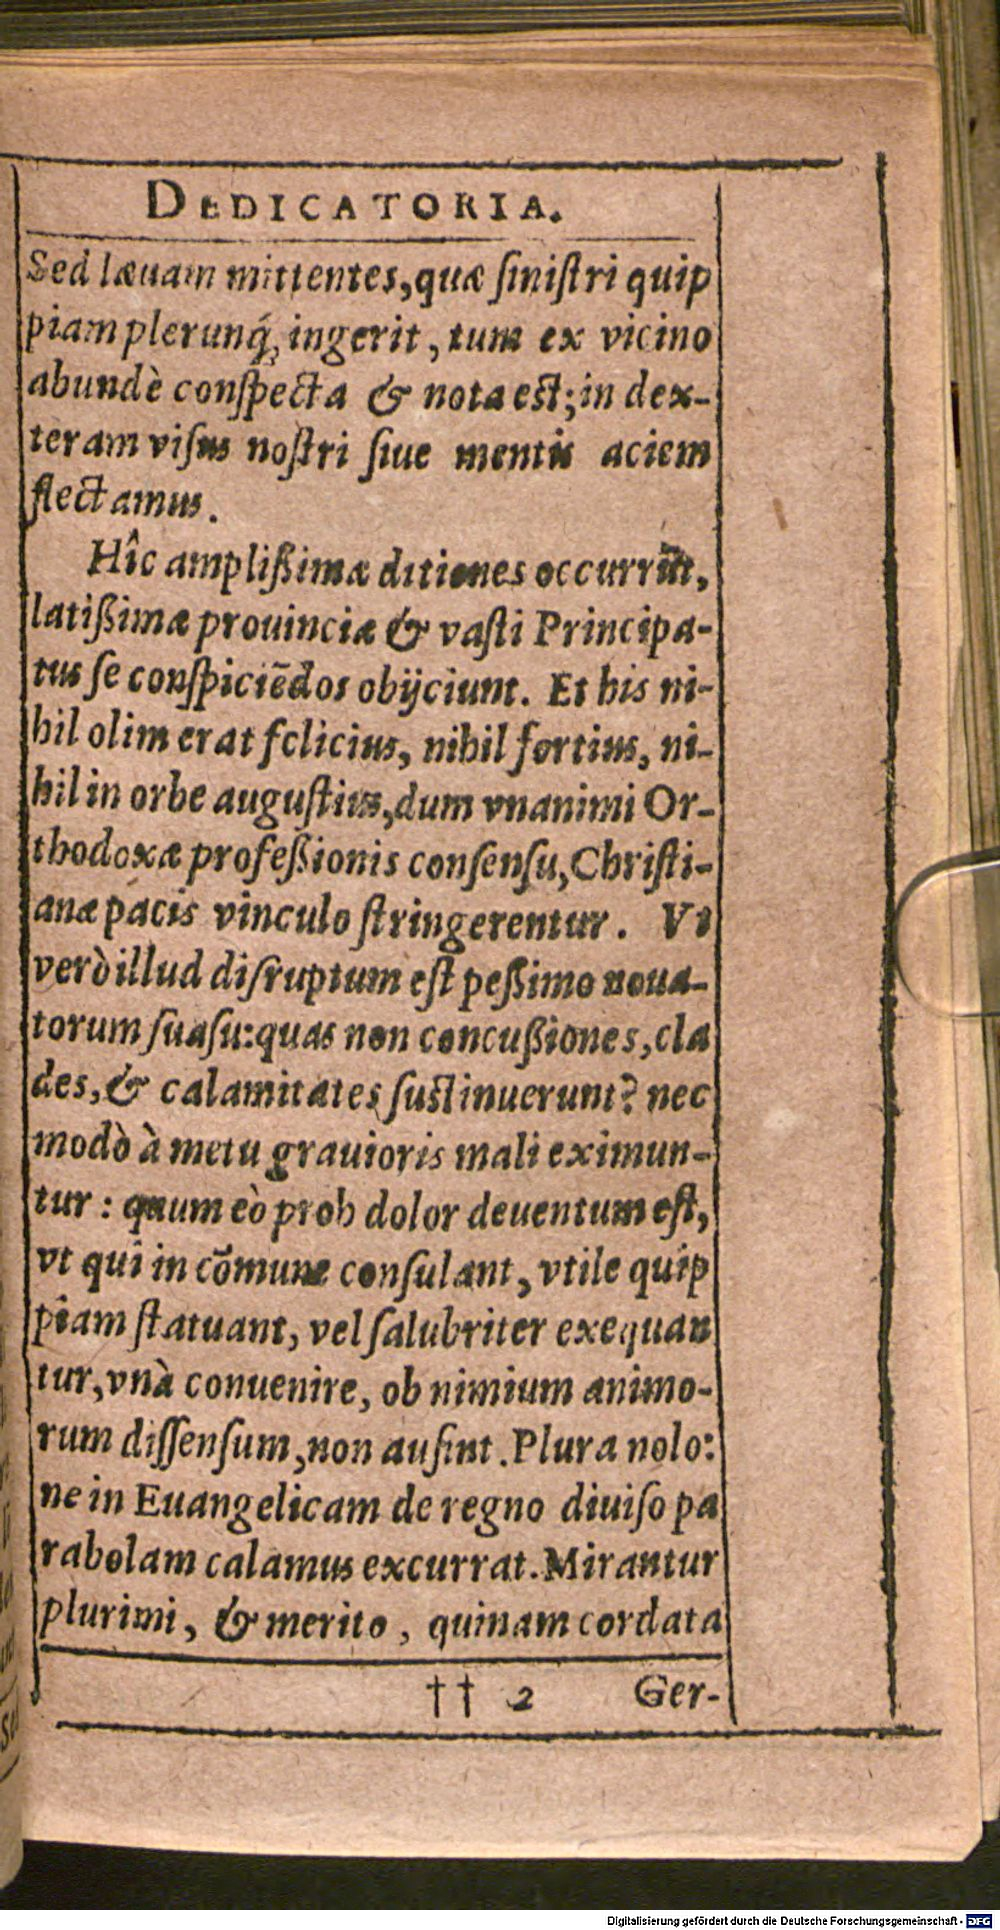 DEDICATORIA.
Sed læuam mittentes, quæ ſiniſtri quip
piam plerunq́; ingerit, tum ex vicino
abundè conſpecta & nota eſt; in dex-
teram viſus noſtri ſiue mentis aciem
flectamus.
Hîc ampliſſimæ ditiones occurrũt,
latiſſimæ prouinciæ & vaſti Principa-
tus ſe conſpiciẽdos obijciunt. Et his ni-
hil olim erat felicius, nihil fortius, ni-
hil in orbe auguſtius, dum vnanimi Or-
thodoxæ profeſſionis conſenſu, Chriſti-
anæ pacis vinculo ſtringerentur. Vt
verò illud diſruptum eſt peſſimo noua-
torum ſuaſu: quas non concuſſiones, cla
des, & calamitates ſuſtinuerunt? nec
modò à metu grauioris mali eximun-
tur: quum eò proh dolor deuentum eſt,
vt qui in cõmune conſulant, vtile quip
piam ſtatuant, vel ſalubriter exequan
tur, vnà conuenire, ob nimium animo-
rum diſſenſum, non auſint. Plura nolo:
ne in Euangelicam de regno diuiſo pa
rabolam calamus excurrat. Mirantur
plurimi, & merito, quinam cordata
†† 2 Ger-
Digitalisierung gefördert durch die Deutsche Forschungsgemeinschaft - DFG